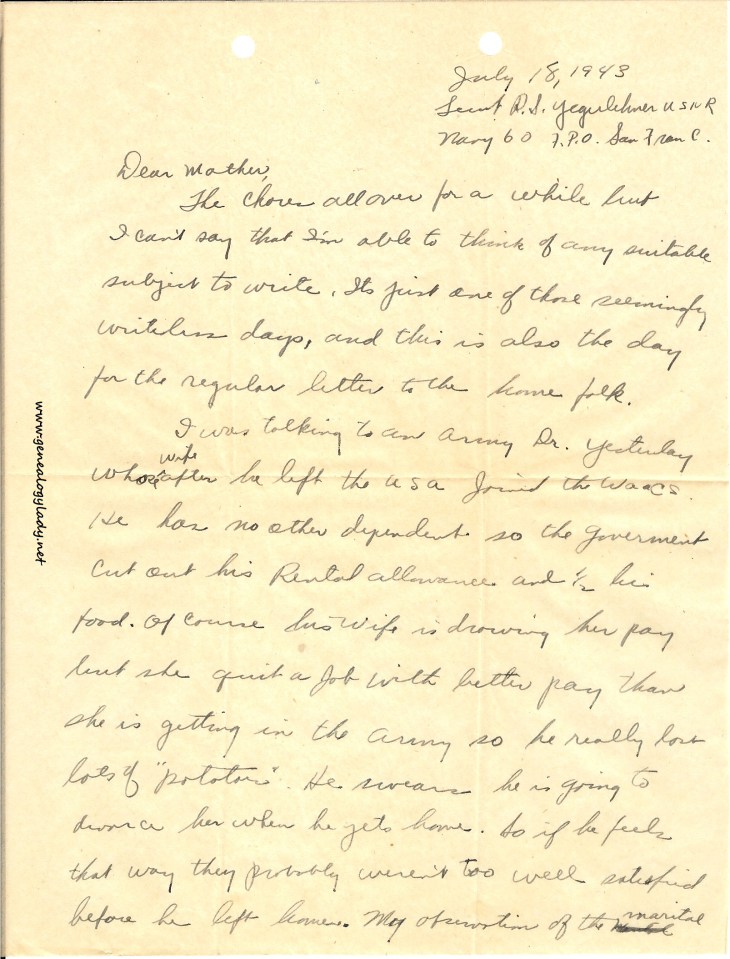 July 18, 1943
Lieut R.S. Yegerlehner USNR
Navy 60 F.P.O. San Fran C.
Dear Mother,
The chores all over for a while but
I can't say that I'm able to think of any suitable
subject to write. Its just one of those seemingly
writeless days, and this is also the day
for the regular letter to the home folk.
I was talking to an Army Dr. yesterday
whose wife after he left the USA Joined the Waacs.
He has no other dependent so the Goverment
cut out his Rental allowance and 1/2 his
food. Of course his wife is drawing her pay
but she quit a Job with better pay than
she is getting in the army so he really lost
lots of "potatoes". He swears he is going to
divorce her when he gets home. So if he feels
that way they probably weren't too well satisfied
before he left home. My observation of the marital
www.genealogylady.net